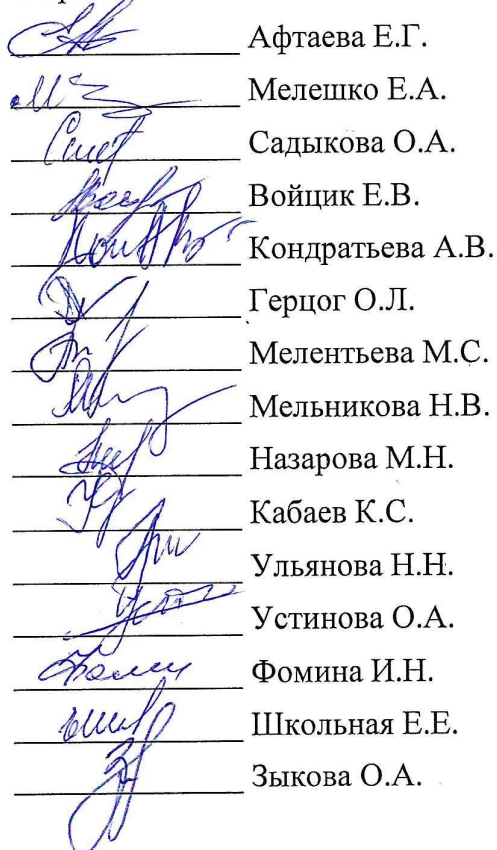 Афтаева Е.Г.
Мелешко Е.А.
Садыкова О.А.
Войцик Е.В.
Кондратьева А.В.
Герцог О.Л.
Мелентьева М.С.
Мельникова Н.В.
Назарова М.Н.
Кабаев К.С.
Ульянова Н.Н.
Устинова О.А.
Фомина И.Н.
Школьная Е.Е.
Зыкова О.А.